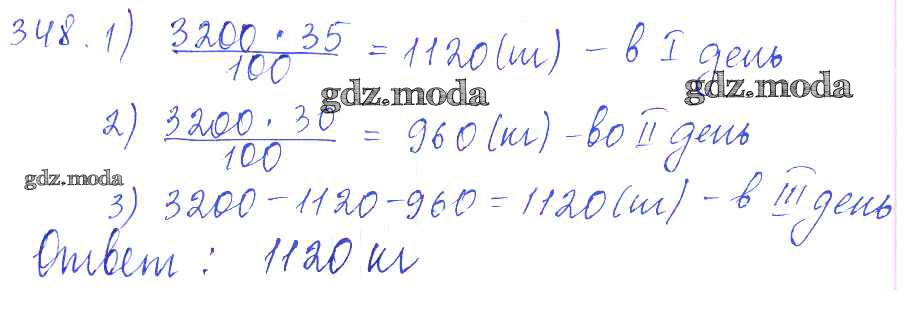 348. 1) 3200 · 35 / 100 = 1120 (кг) – в I день
gdz.moda gdz.moda
2) 3200 · 30 / 100 = 960 (кг) – во II день
gdz.moda
3) 3200 – 1120 – 960 = 1120 (кг) – в III день
Ответ : 1120 кг